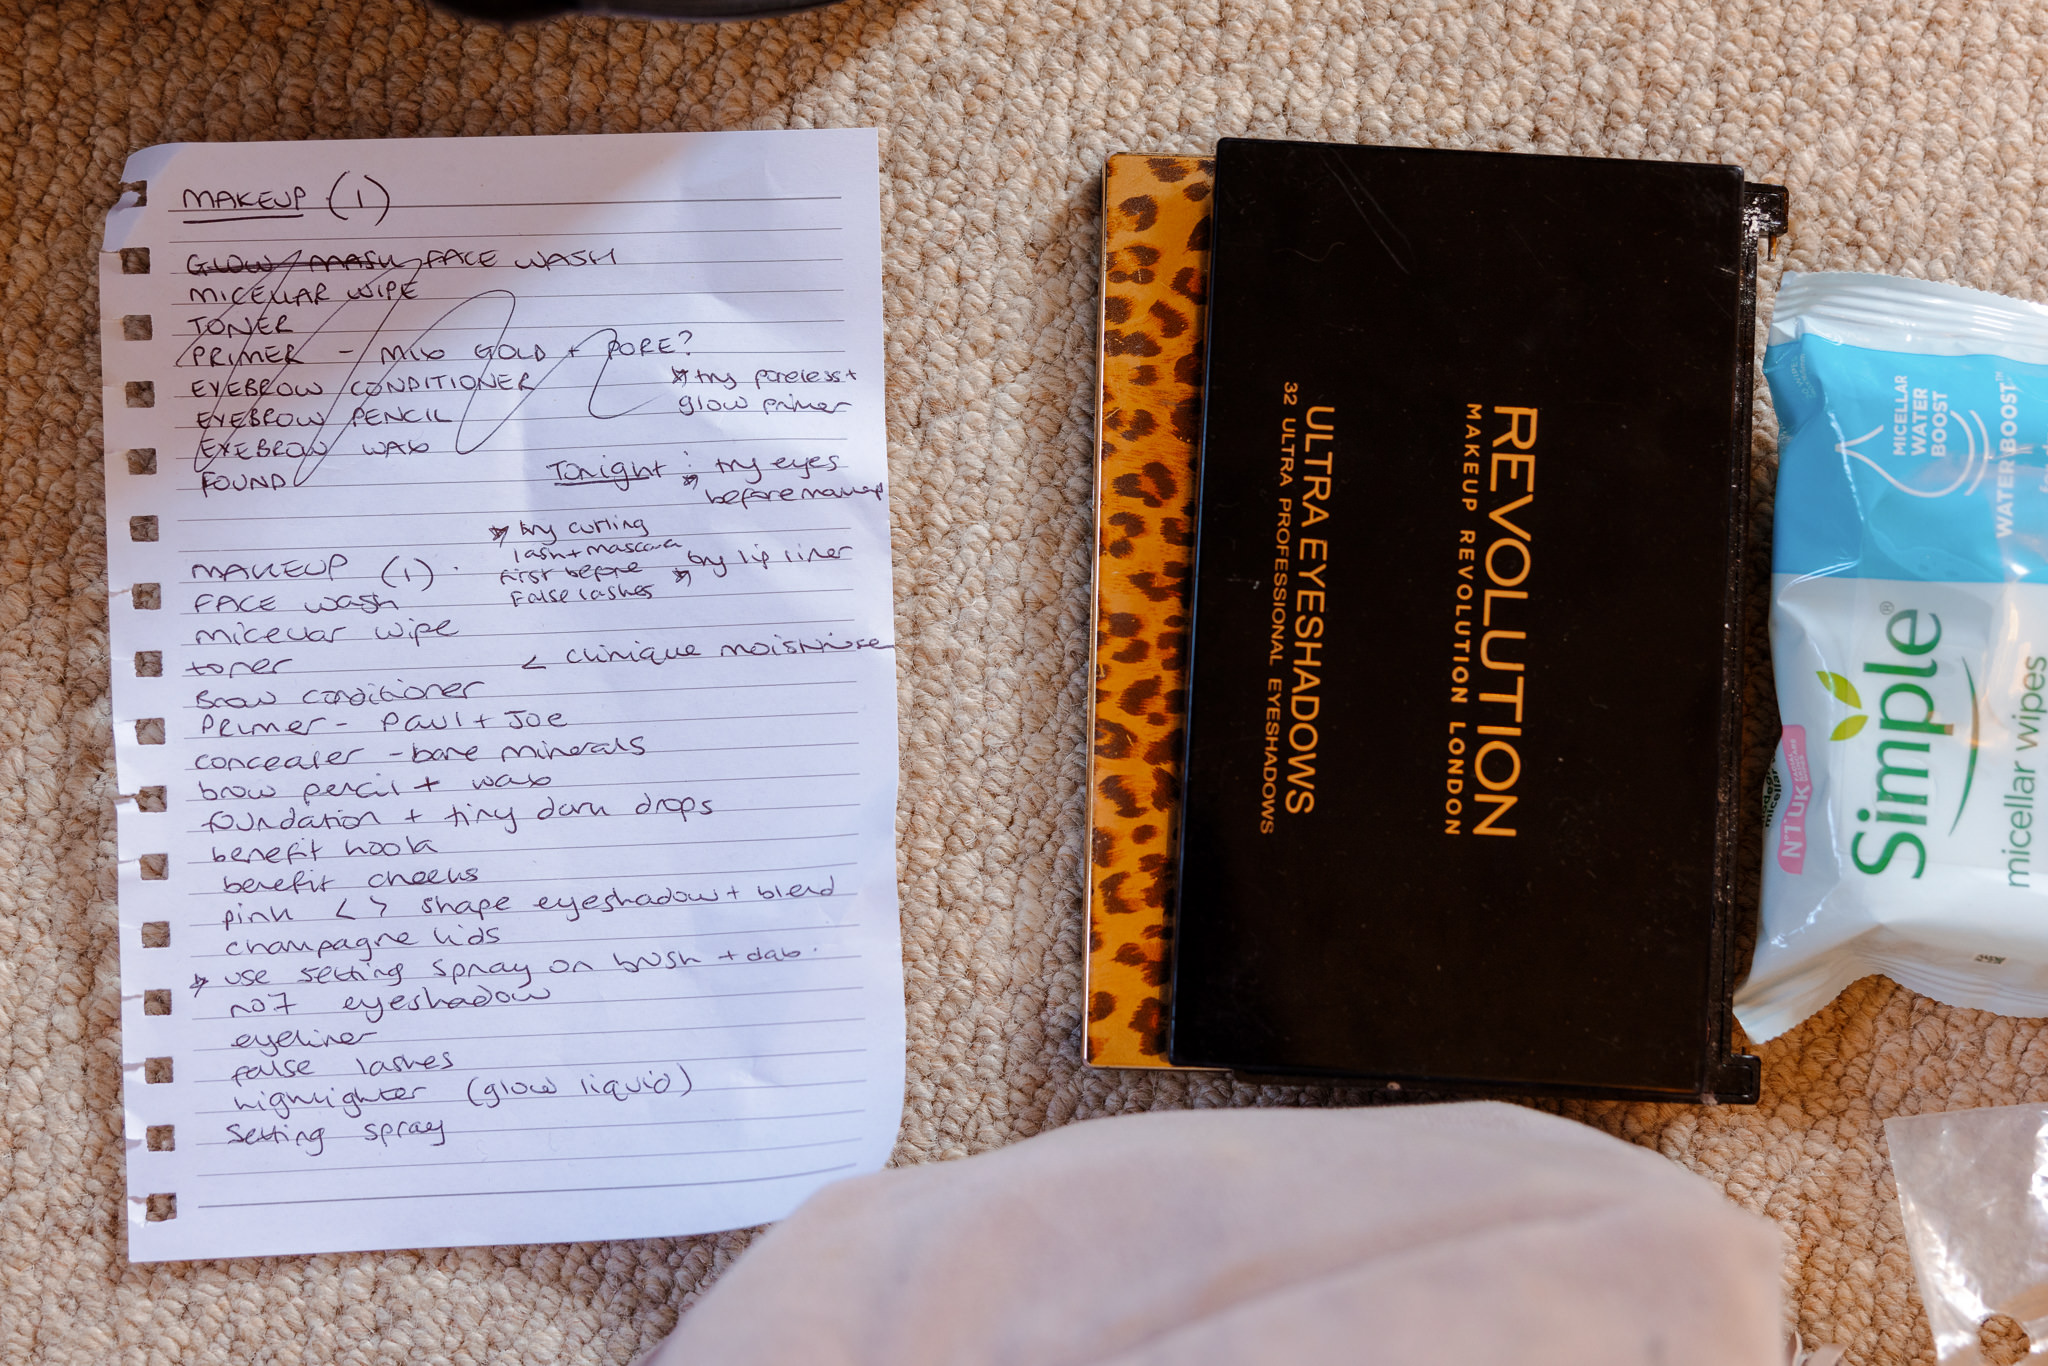 MAKEUP (1)
GLOW MASK FACE WASH
MICELLAR WIPE
TONER
PRIMER - MIX GOLD + PORE?
EYEBROW CONDITIONER
* try poreless +
glow primer
EYEBROW PENCIL
EYEBROW WAX
FOUND
Tonight : * try eyes
before makeup
* try curling
lash + mascara
first before
false lashes
* try lip liner
MAKEUP (1).
FACE WASH
micellar wipe
toner
< clinique moisturise
Brow conditioner
Primer - Paul + Joe
concealer - bare minerals
brow pencil + wax
foundation + tiny dark drops
benefit hoola
benefit cheeks
pink < > shape eyeshadow + blend
champagne lids
* use setting spray on brush + dab.
no7 eyeshadow
eyeliner
false lashes
highlighter (glow liquid)
setting spray
REVOLUTION
MAKEUP REVOLUTION LONDON
ULTRA EYESHADOWS
32 ULTRA PROFESSIONAL EYESHADOWS
MICELLAR
WATER
BOOST
WATER BOOST™
Simple®
micellar wipes